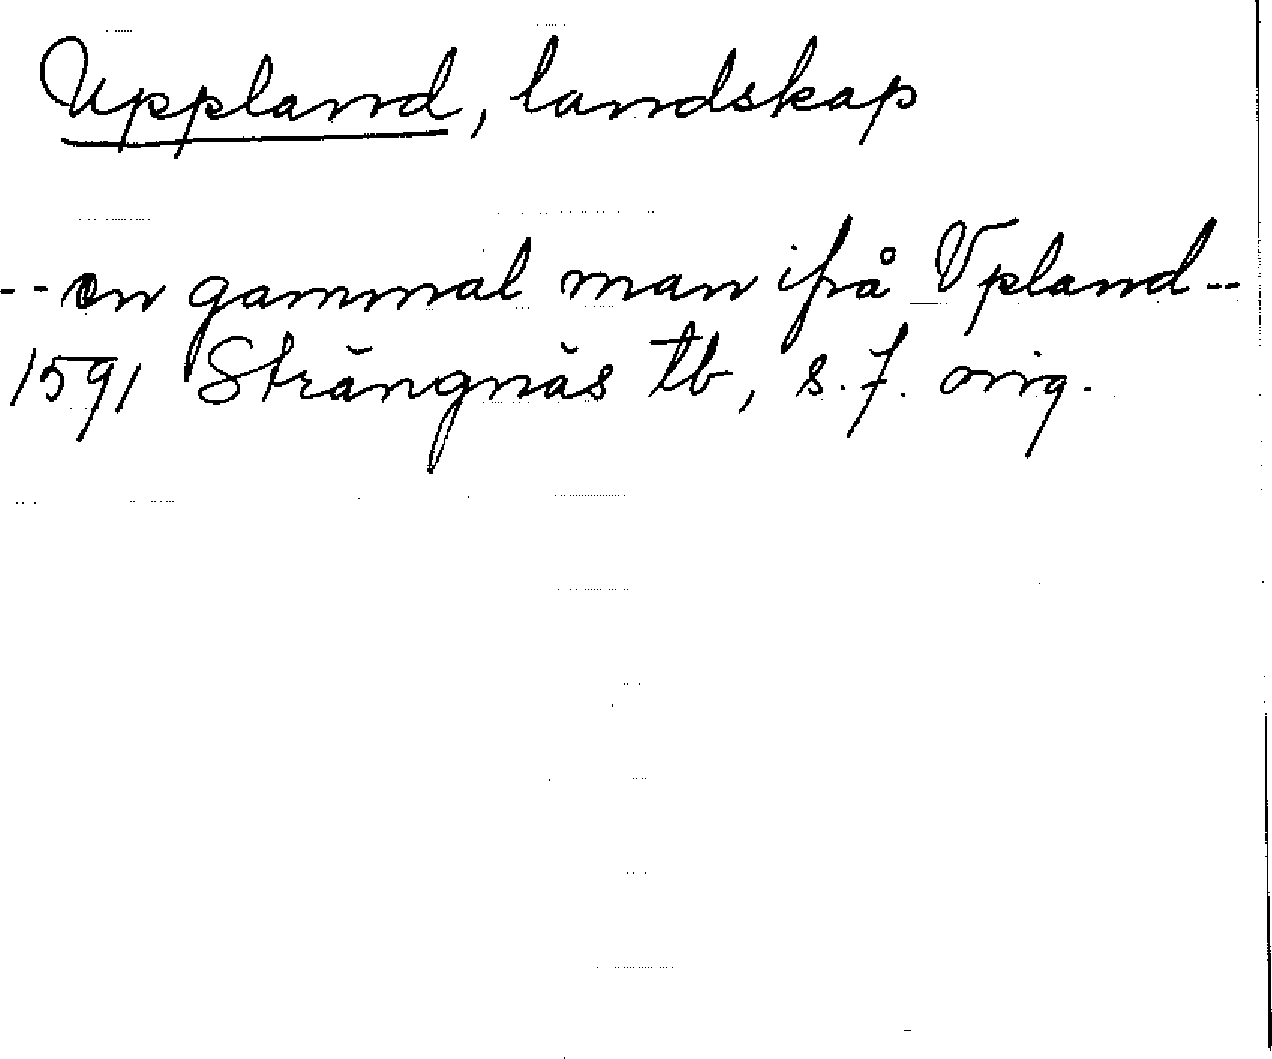 Uppland, landskap
-- en gammal man ifrå Vpland --
1591 Strängnäs tb, s. 7. orig.